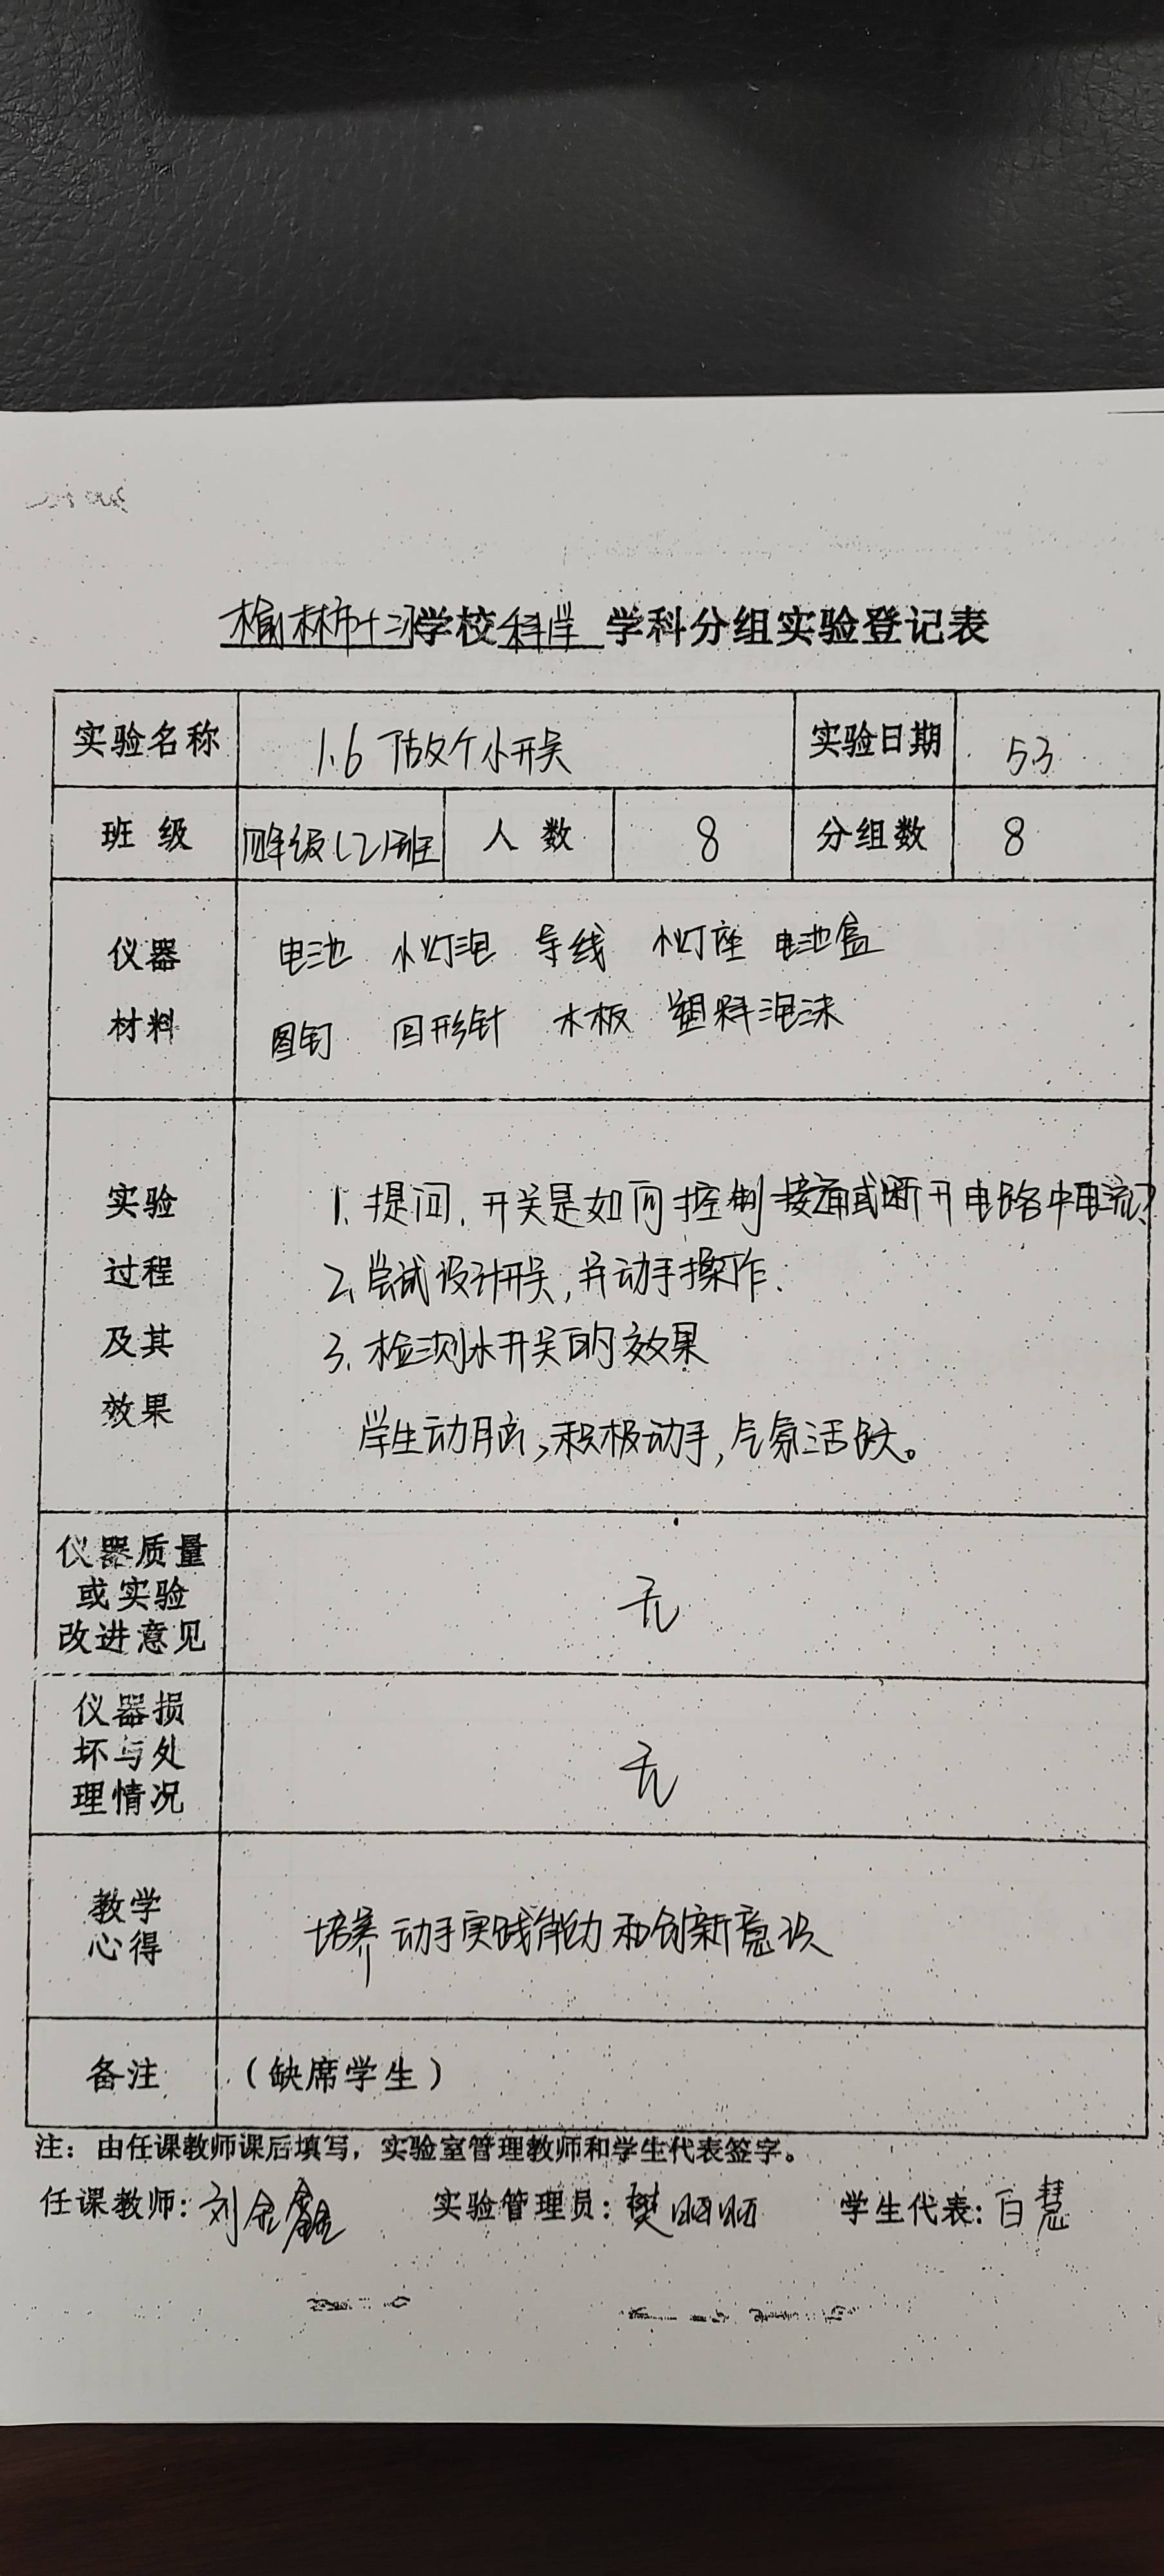 榆林市十三小学校科学学科分组实验登记表
实验名称 1.6 做个小开关 实验日期 5.3
班级 四年级(2)班 人数 8 分组数 8
仪器材料 电池 小灯泡 导线 小灯座 电池盒
图钉 回形针 木板 塑料泡沫
实验过程及其效果
1. 提问, 开关是如何控制接通或断开电路中电流?
2. 尝试设计开关, 并动手操作.
3. 检测小开关的效果
学生动脑,积极动手,气氛活跃。
仪器质量或实验改进意见 无
仪器损坏与处理情况 无
教学心得 培养动手实践能力和创新意识
备注 (缺席学生)
注：由任课教师课后填写，实验室管理教师和学生代表签字。
任课教师:刘金鑫 实验管理员:樊 学生代表:白慧